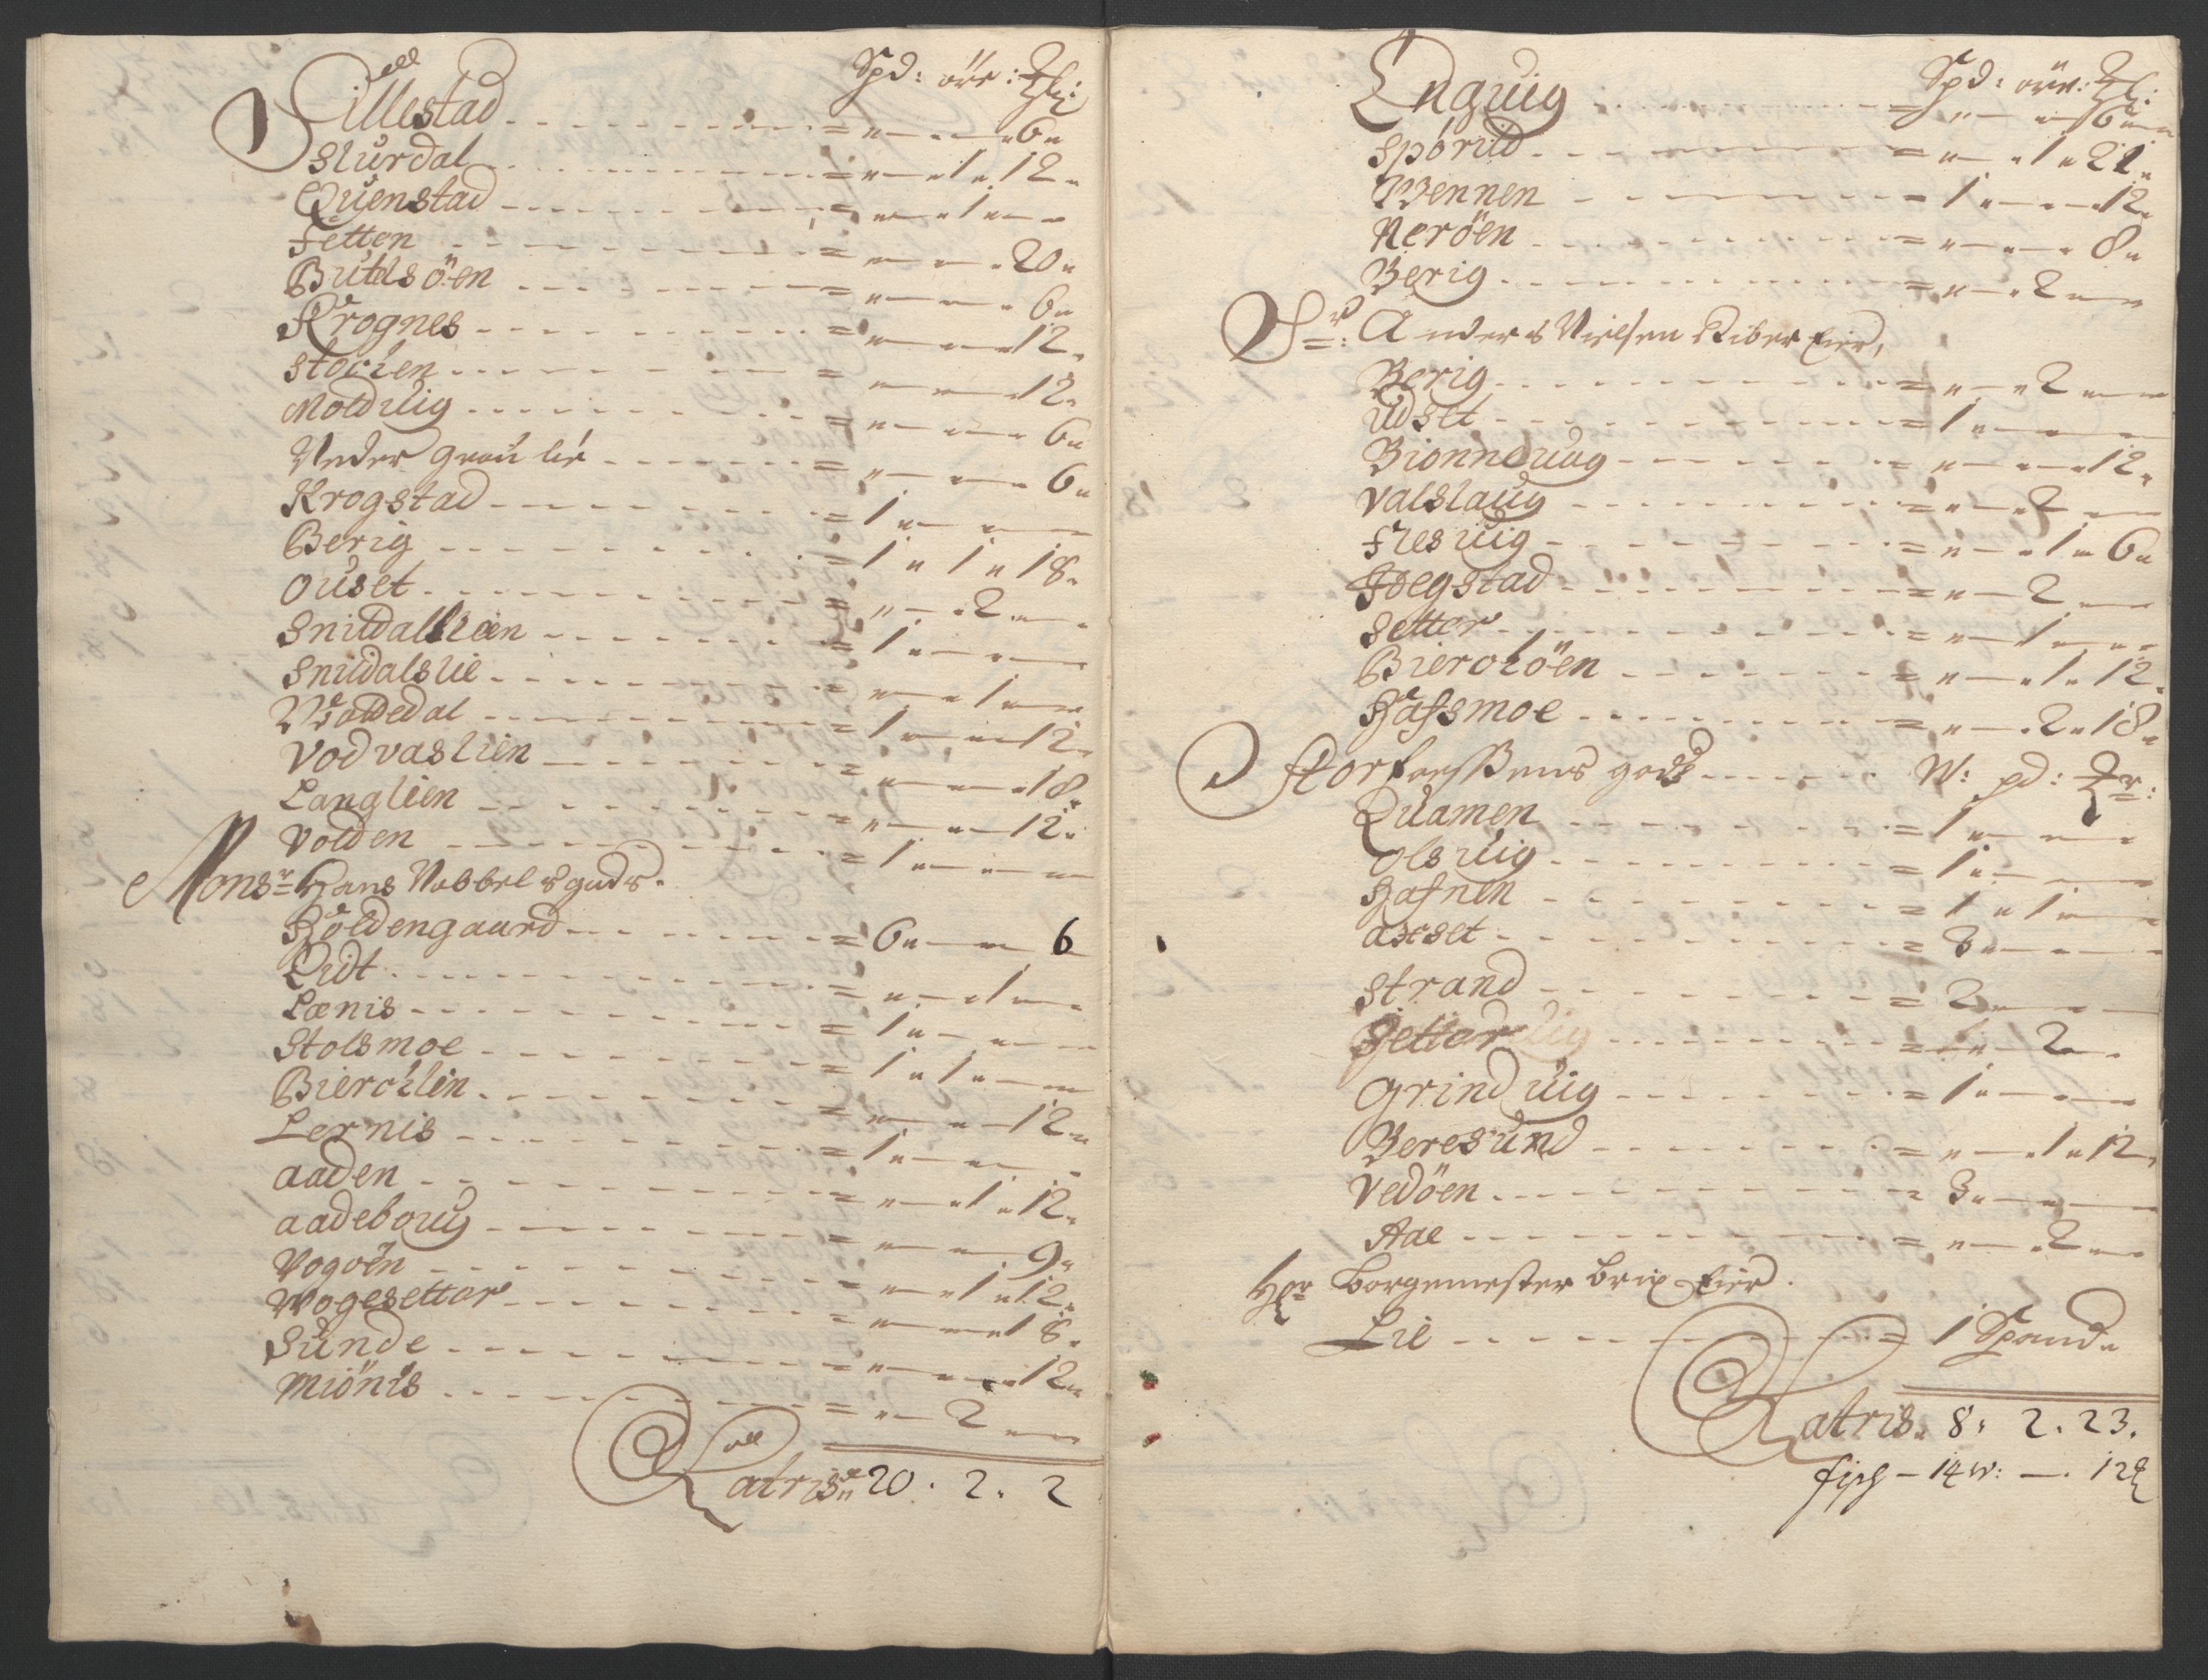 Spd: öre: ℔:
Villestad - - - = " — " — " 6 "
Slurdal - - - = " — " 1 " 12 "
Quenstad - - - = " — " 1 " — "
Fetten - - - = " — " — " 20 "
Buldsöen - - - = " — " — " 6 "
Krognes - - - = " — " — " 12 "
Stochen - - - = " — " — " 12 "
Moldvig - - - = " — " — " 6 "
Neder Grou lie - - - = " — " — " 6 "
Krogstad - - - = 1 " — " — "
Berig - - - = 1 " 1 " 18 "
Ouset - - - = " — " 2 " — "
Snildalslien - - - = 1 " — " — "
Snildalslie - - - = " — " 1 " — "
Woldedal - - - = 1 " — " 12 "
Vodvaslien - - - = " — " — " 18 "
Langlien - - - = " — " — " 12 "
Volden - - - = 1 " — " — "
Monsr Hans Nobbels guds.
Holdengaard - - - = 6 " — " 6
Eidt - - - = " — " 1 " — "
Lænis - - - = 1 " — " — "
Stolsmoe - - - = 1 " 1 " — "
Bierchlin - - - = " — " — " 12 "
Lernis - - - = 1 " — " — "
Aaden - - - = " — " 1 " 12 "
Aadeboug - - - = " — " — " 9 "
Vogöen - - - = " — " 1 " 12 "
Wogesetter - - - = " — " — " 18 "
Sunde - - - = " — " — " 12 "
Miönis - - - = " — 2 " — "
Latris " 20 . 2 . 2
Spd: öre: ℔:
Engvig - - - = " — " — " 6 "
Spörild - - - = " — " 1 " 21 "
Wennen - - - = 1 " — " 12 "
Neröen - - - = " — " — " 8 "
Berig - - - = " — " 2 " — "
Sr: Anders Nielsen Riber Eier,
Berig - - - = " — " 2 " — "
Udset - - - = 1 " — " — "
Bionnevag - - - = " — " — " 12 "
Valslaug - - - = " — " 2 " — "
Flesvig - - - = " — " 1 " 6 "
Hegstad - - - = " — 2 " — "
Setter - - - = " — 1 " — "
Bierchöen - - - = " — " 1 " 12 "
Hafsmoe - - - = " — " 2 " 18 "
Storfoessens gods - - - W: pd: ℔r:
Quamen - - - = 1 " — " — "
Olsvig - - - = 1 " — " — "
Hafnen - - - = 1 " 1 " — "
Axset - - - = 3 " — " — "
Strand - - - = 2 " — " — "
Setter - - - = " 2 " — "
Grindvig - - - = 1 " — " — "
Beresund - - - = " — " 1 " 12 "
Vedöen - - - = 3 " — " — "
Aae - - - = " — " 2 " — "
Hr Borgemester Brix Eier.
Lie - - - = 1 Spand "
Latris " 8 : 2 . 23 .
fisch — 14 W: — . 12 ℔